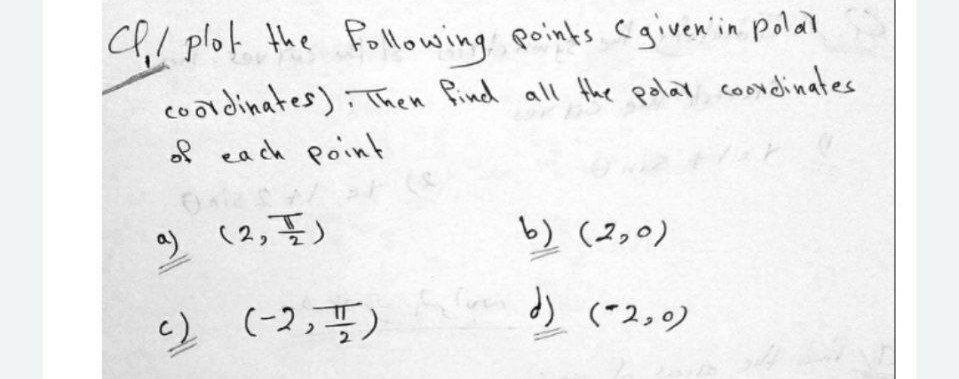 Q1/ plot the following points (given in polar
coordinates); Then find all the polar coordinates
of each point
a) (2, π/2) b) (2,0)
c) (-2, π/2) d) (-2,0)